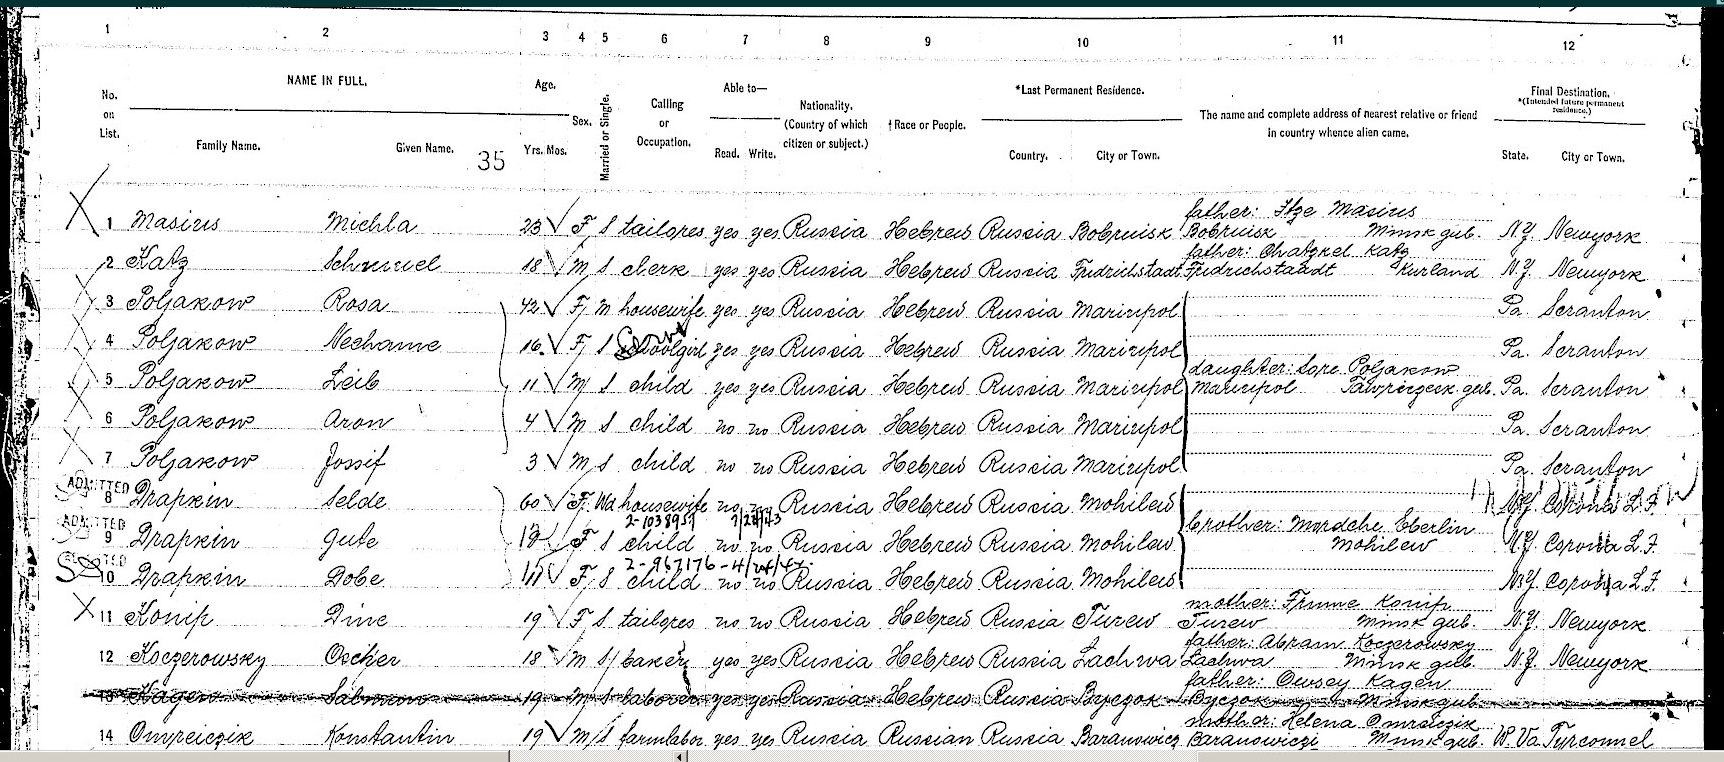 1 2 3 4 5 6 7 8 9 10 11 12
No. on List.
NAME IN FULL.
Family Name. Given Name.
35
Age.
Yrs. Mos.
Sex.
Married or Single.
Calling or Occupation.
Able to—
Read. Write.
Nationality. (Country of which citizen or subject.)
†Race or People.
*Last Permanent Residence.
Country. City or Town.
The name and complete address of nearest relative or friend in country whence alien came.
Final Destination.
*(Intended future permanent residence.)
State. City or Town.
father: Itze Masius
1 Masius Michla 23 F S tailores yes yes Russia Hebrew Russia Bobruisk Bobruisk Minsk gub. N.Y. Newyork
father: Chatzkel Katz
2 Katz Schmuel 18 M S clerk yes yes Russia Hebrew Russia Fridrichstadt Fridrichstaadt Kurland N.Y. Newyork
3 Poljakow Rosa 42 F M housewife yes yes Russia Hebrew Russia Mariupol Pa. Scranton
4 Poljakow Nechame 16 F S schoolgirl yes yes Russia Hebrew Russia Mariupol Pa. Scranton
daughter: Sore Poljakow
5 Poljakow Leib 11 M S child yes yes Russia Hebrew Russia Mariupol Mariupol gub. Pa. Scranton
6 Poljakow Aron 4 M S child no no Russia Hebrew Russia Mariupol Pa. Scranton
7 Poljakow Jossif 3 M S child no no Russia Hebrew Russia Mariupol Pa. Scranton
ADMITTED
8 Drapkin Selde 60 F Wd housewife no no Russia Hebrew Russia Mohilew N.Y. Corona L.F.
2-1038959
ADMITTED
brother: Mordche Eberlin
9 Drapkin Gute F S child no no Russia Hebrew Russia Mohilew Mohilew N.Y. Corona L.F.
2-967176
10 Drapkin Dobe 11 F S child no no Russia Hebrew Russia Mohilew N.Y. Corona L.F.
mother: Frume Konip
11 Konip Dine 19 F S tailores no no Russia Hebrew Russia Turew Turew Minsk gub. N.Y. Newyork
father: Abram Koczerowsky
12 Koczerowsky Oscher 18 M S baker yes yes Russia Hebrew Russia Lachwa Lachwa Minsk gub. N.Y. Newyork
father: Owsey Kagen
13 Kagen Salmen 19 M S laborer yes yes Russia Hebrew Russia Byczok Byczok Minsk gub.
mother: Helena Omreiczik
14 Omreiczik Konstantin 19 M S farmlabor yes yes Russia Russian Russia Baranowicz Baranowiczi Minsk gub. W.Va. Tyrconnel